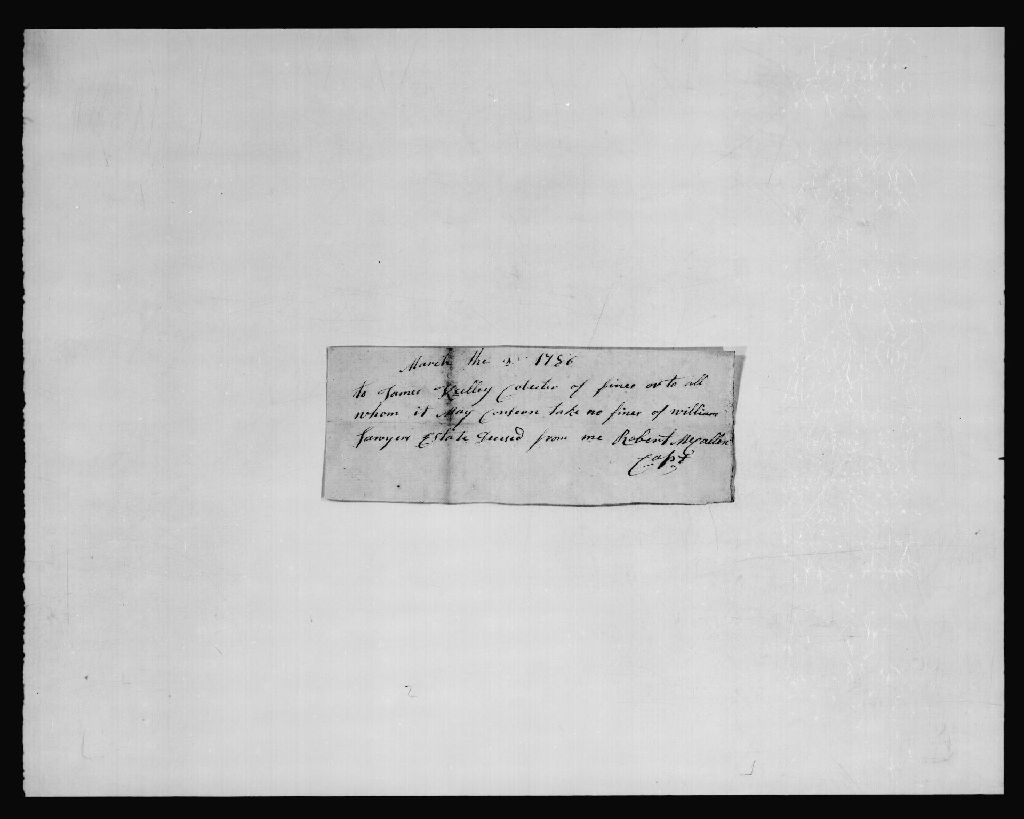 March the 3 1786
to James Kelley Colecter of fines or to all
whom it May Consern take no fines of william
Sawyer Estate Decesed from me Robert Mcgallen
Capt